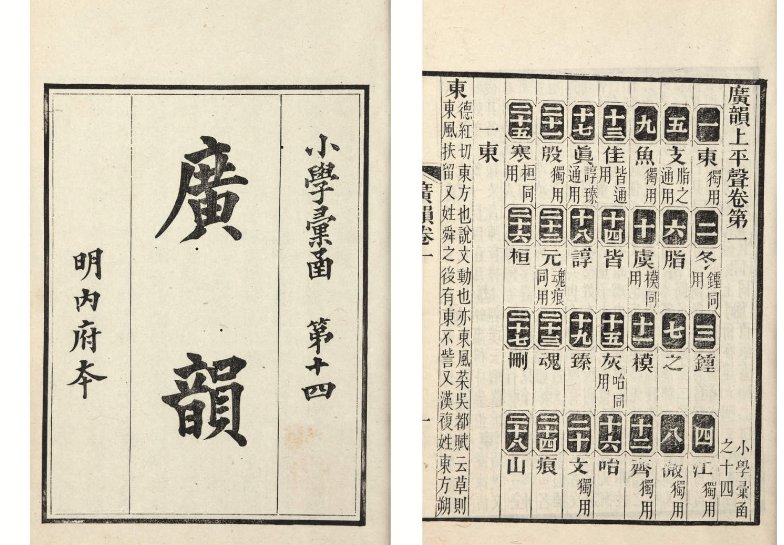 小學彙函 第十四
廣韻
明內府本
廣韻上平聲卷第一 小學彙函之十四
一東獨用 二冬鍾同用 三鍾 四江獨用
五支脂之通用 六脂 七之 八微獨用
九魚獨用 十虞模同用 十一模 十二齊獨用
十三佳皆通用 十四皆 十五灰咍同用 十六咍
十七眞諄臻通用 十八諄 十九臻 二十文獨用
二十一殷獨用 二十二元魂痕同用 二十三魂 二十四痕
二十五寒桓同用 二十六桓 二十七刪 二十八山
一東
東德紅切東方也說文動也亦東風菜吳都賦云草則
東風扶留又姓舜之後有東不訾又漢複姓東方朔
廣韻卷一 一